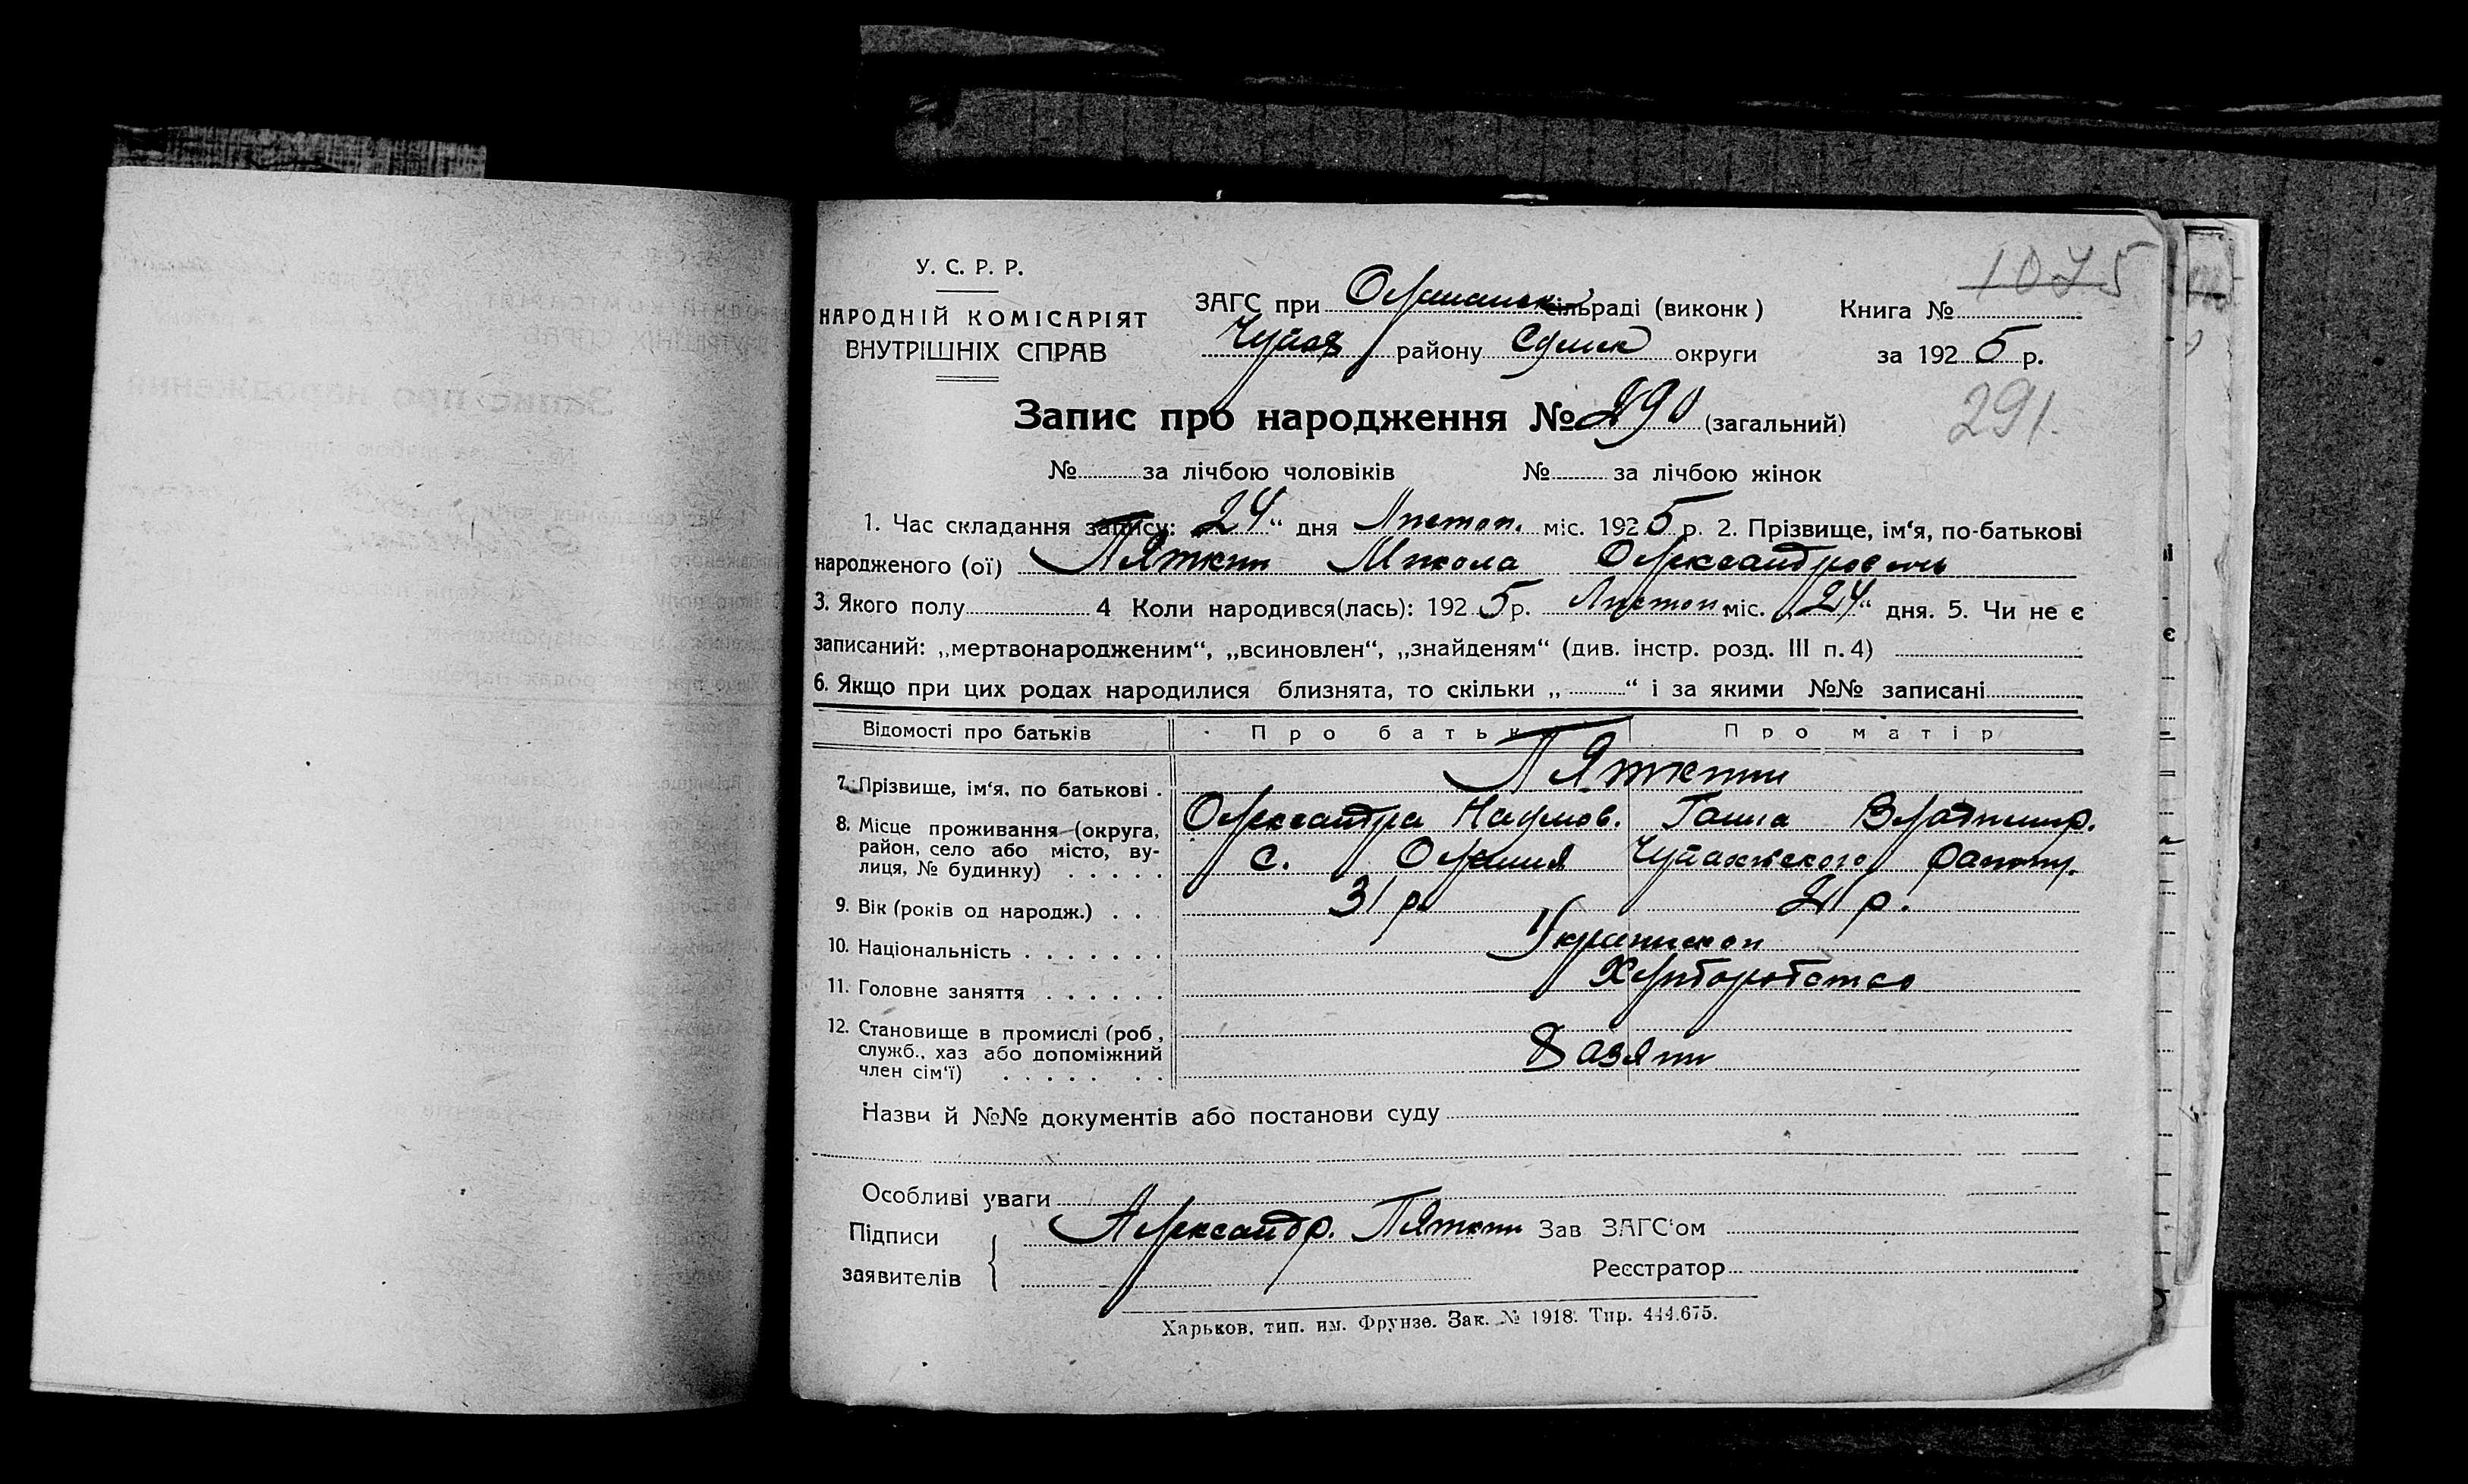 1075
У. С. Р. Р.
НАРОДНІЙ КОМІСАРІЯТ
ВНУТРІШНІХ СПРАВ
ЗАГС при сільраді (виконк)
району Сумск округи
Книга №
за 1925 р.
Запис про народження № 290 (загальний)
291.
№ за лічбою чоловіків № за лічбою жінок
1. Час складання запису: 24“ дня Листоп. міс. 1925 р. 2. Прізвище, ім‘я, по-батькові
народженого (ої) Пяткин Микола Олександрович
3. Якого полу 4 Коли народився(лась): 1925 р. Листоп міс. „24“ дня. 5. Чи не є
записаний: „мертвонародженим“, „всиновлен“, „знайденям“ (див. інстр. розд. III п. 4)
6. Якщо при цих родах народилися близнята, то скільки „ “ і за якими №№ записані
Відомості про батьків Про батька Про матір
7. Прізвище, ім‘я, по батькові . Пяткини
Олександра Наумов. Ганна Владимир.
8. Місце проживання (округа,
район, село або місто, ву-
лиця, № будинку) . . . . . с. Олешня
9. Вік (років од народж.) . . 31 р. 21 р.
10. Національність . . . . . . .
11. Головне заняття . . . . . . Хлиборобство
12. Становище в промислі (роб,
служб., хаз або допоміжний
член сім‘ї) . . . . . . . Хазяїни
Назви й №№ документів або постанови суду
Особливі уваги
Підписи
заявителів
Александр. Пяткин
Зав ЗАГС‘ом
Реєстратор
Харьков, тип. им. Фрунзе. Зак. № 1918. Тир. 444.675.